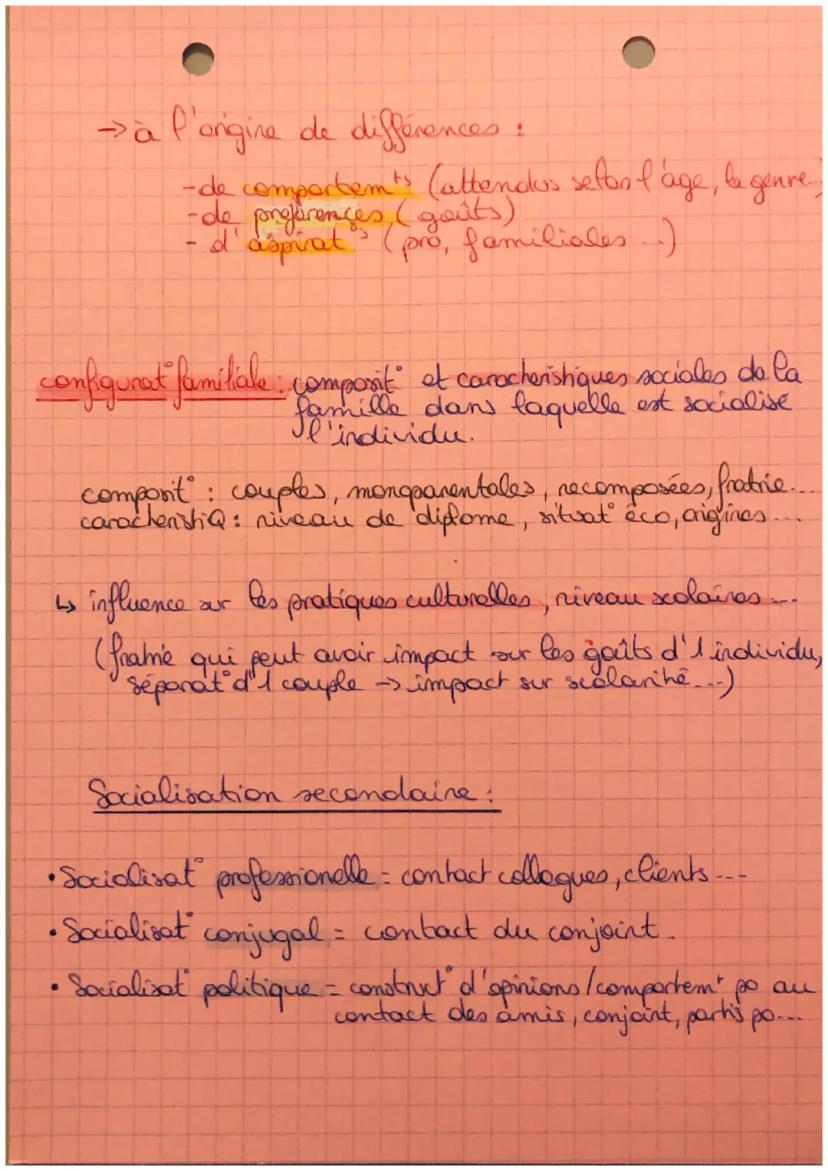 → à l'origine de différences :
- de comportemᵗˢ (attendus selon l'âge, le genre...)
- de préférences (goûts)
- d'aspirat°s (pro, familiales ...)
configurat° familiale : composit° et caractéristiques sociales de la
famille dans laquelle est socialise
l'individu.
composit° : couples, monoparentales, recomposées, fratrie...
caractéristiQ : niveau de diplome, situat° éco, origines...
↳ influence sur les pratiques culturelles, niveau scolaires...
(fratrie qui peut avoir impact sur les goûts d'1 individu,
séparat° d'1 couple → impact sur scolarité...)
Socialisation secondaire :
• Socialisat° professionelle = contact collegues, clients...
• Socialisat° conjugal = contact du conjoint.
• Socialisat° politique = construct° d'opinions/comportemᵗ po au
contact des amis, conjoint, partis po...